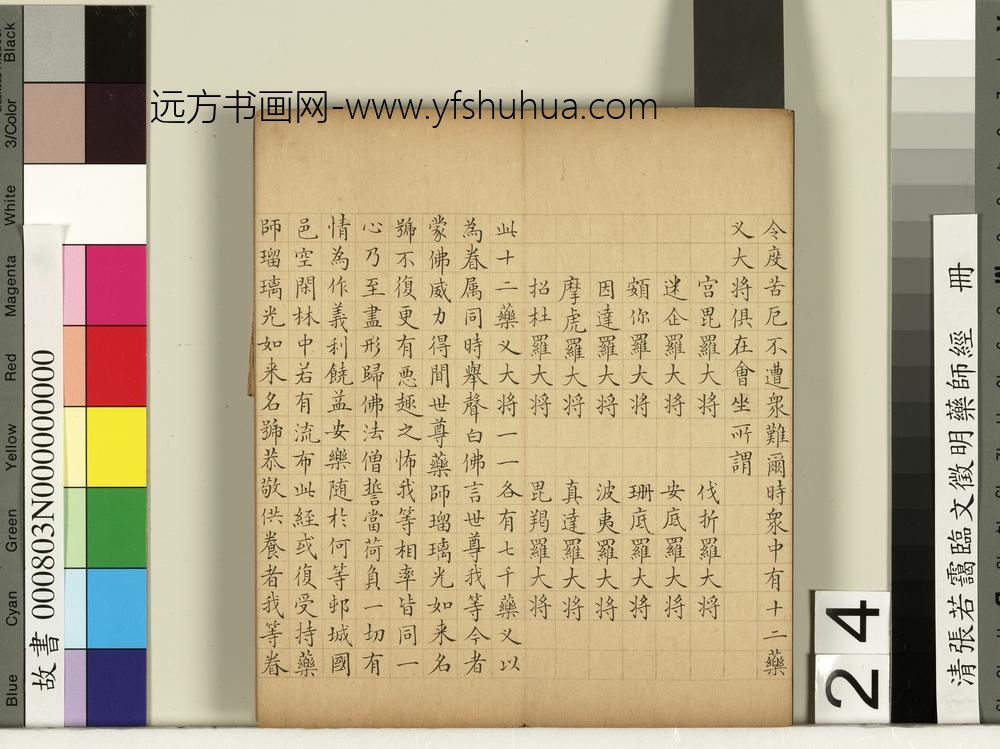 远方书画网-www.yfshuhua.com
令度苦厄不遭衆難爾時衆中有十二藥
叉大将俱在會坐所謂
宫毘羅大将 伐折羅大将
迷企羅大将 安底羅大将
頞你羅大将 珊底羅大将
因達羅大将 波夷羅大将
摩虎羅大将 真達羅大将
招杜羅大将 毘羯羅大将
此十二藥叉大将一一各有七千藥叉以
為眷属同時舉聲白佛言世尊我等今者
蒙佛威力得聞世尊藥師瑠璃光如来名
號不復更有悪趣之怖我等相率皆同一
心乃至盡形歸佛法僧誓當荷負一切有
情為作義利饒益安樂随於何等邨城國
邑空閑林中若有流布此経或復受持藥
師瑠璃光如来名號恭敬供養者我等眷
清張若靄臨文徵明藥師經 冊
24
故書 000803N000000000
Black
3/Color
White
Magenta
Red
Yellow
Green
Cyan
Blue